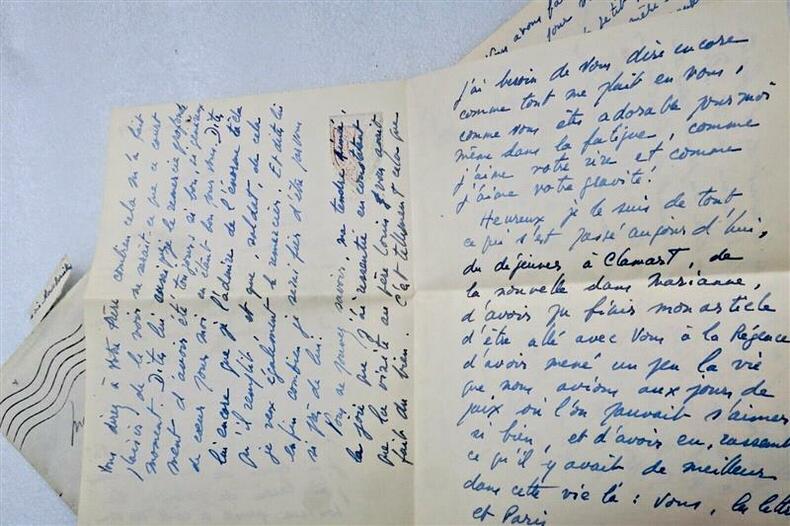 Vous direz à votre mère combien cela m'a fait
plaisir de la voir ne serait ce que ce court
moment. Dites lui aussi que je remercie
ment d'avoir été toujours si bon, si généreux
de cœur pour moi en étant bon pour vous. Dites
lui encore que je l'admire de l'énorme tâche
qu'il remplit et que, soldat, de cela
je veux également le remercier. Et dites lui
enfin combien je serai fier d'être
si près de lui.
Vous ne pouvez savoir, ma tendre
la joie que j'ai ressentie en constatant
que la visite au père Louis vous avait
fait du bien. C'est tellement cela que
j'ai besoin de vous dire encore
comme tout me plaît en vous,
comme vous êtes adorable pour moi
même dans la fatigue, comme
j'aime votre rire et comme
j'aime votre gravité!
Heureux je le suis de tout
ce qui s'est passé aujourd'hui,
du déjeuner à Clamart, de
la nouvelle dans Marianne,
d'avoir pu finir mon article
d'être allé avec vous à la Régence
d'avoir mené un peu la vie
que nous avions aux jours de
paix où l'on pouvait s'aimer
si bien, et d'avoir eu, rassemblé
ce qu'il y avait de meilleur
dans cette vie là : vous, les lettres
et Paris